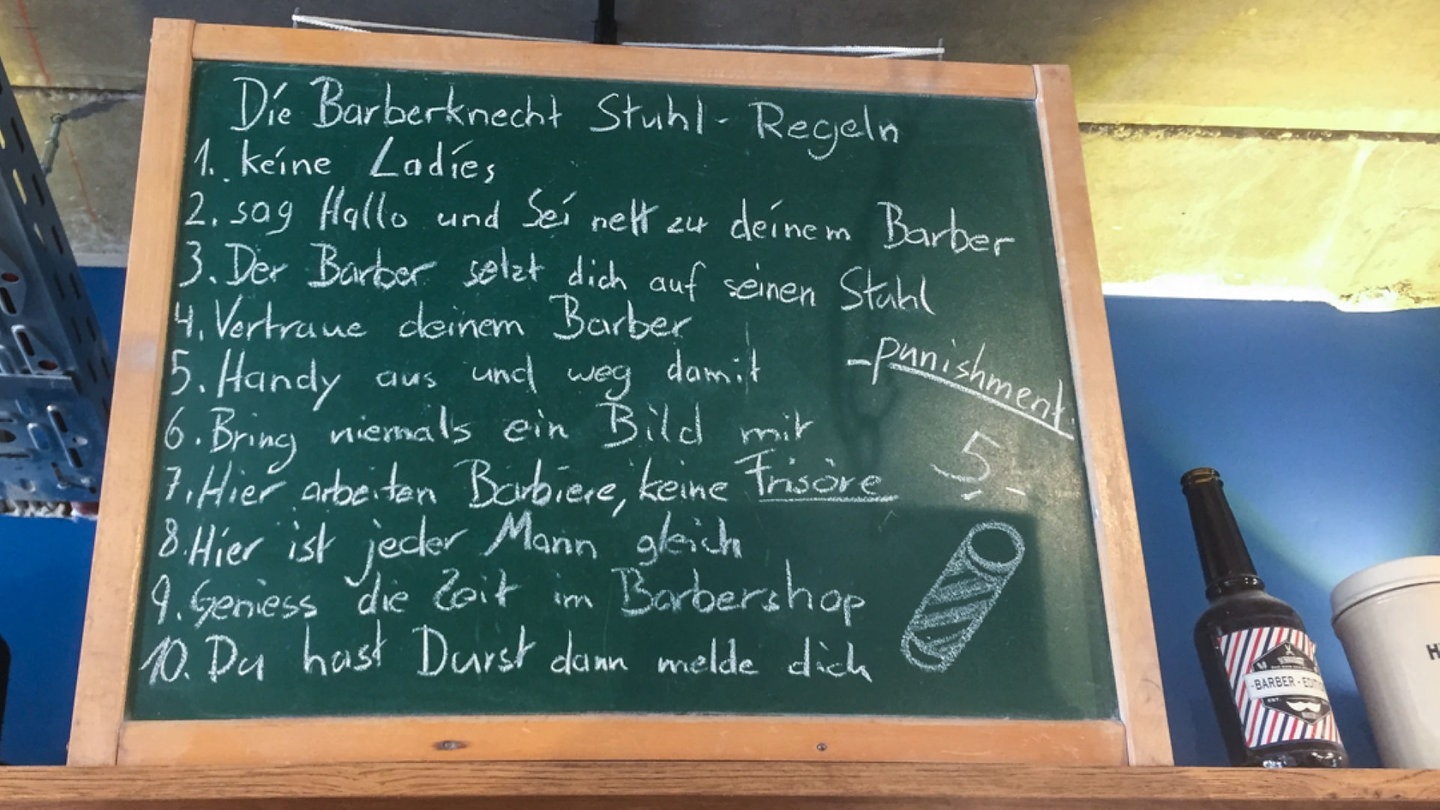 Die Barberknecht Stuhl-Regeln
1. keine Ladies
2. sag Hallo und sei nett zu deinem Barber
3. Der Barber setzt dich auf seinen Stuhl
4. Vertraue deinem Barber
5. Handy aus und weg damit
-punishment
5,-
6. Bring niemals ein Bild mit
7. Hier arbeiten Barbiere, keine Frisöre
8. Hier ist jeder Mann gleich
9. Geniess die Zeit im Barbershop
10. Du hast Durst dann melde dich
-BARBER-EDITI
H